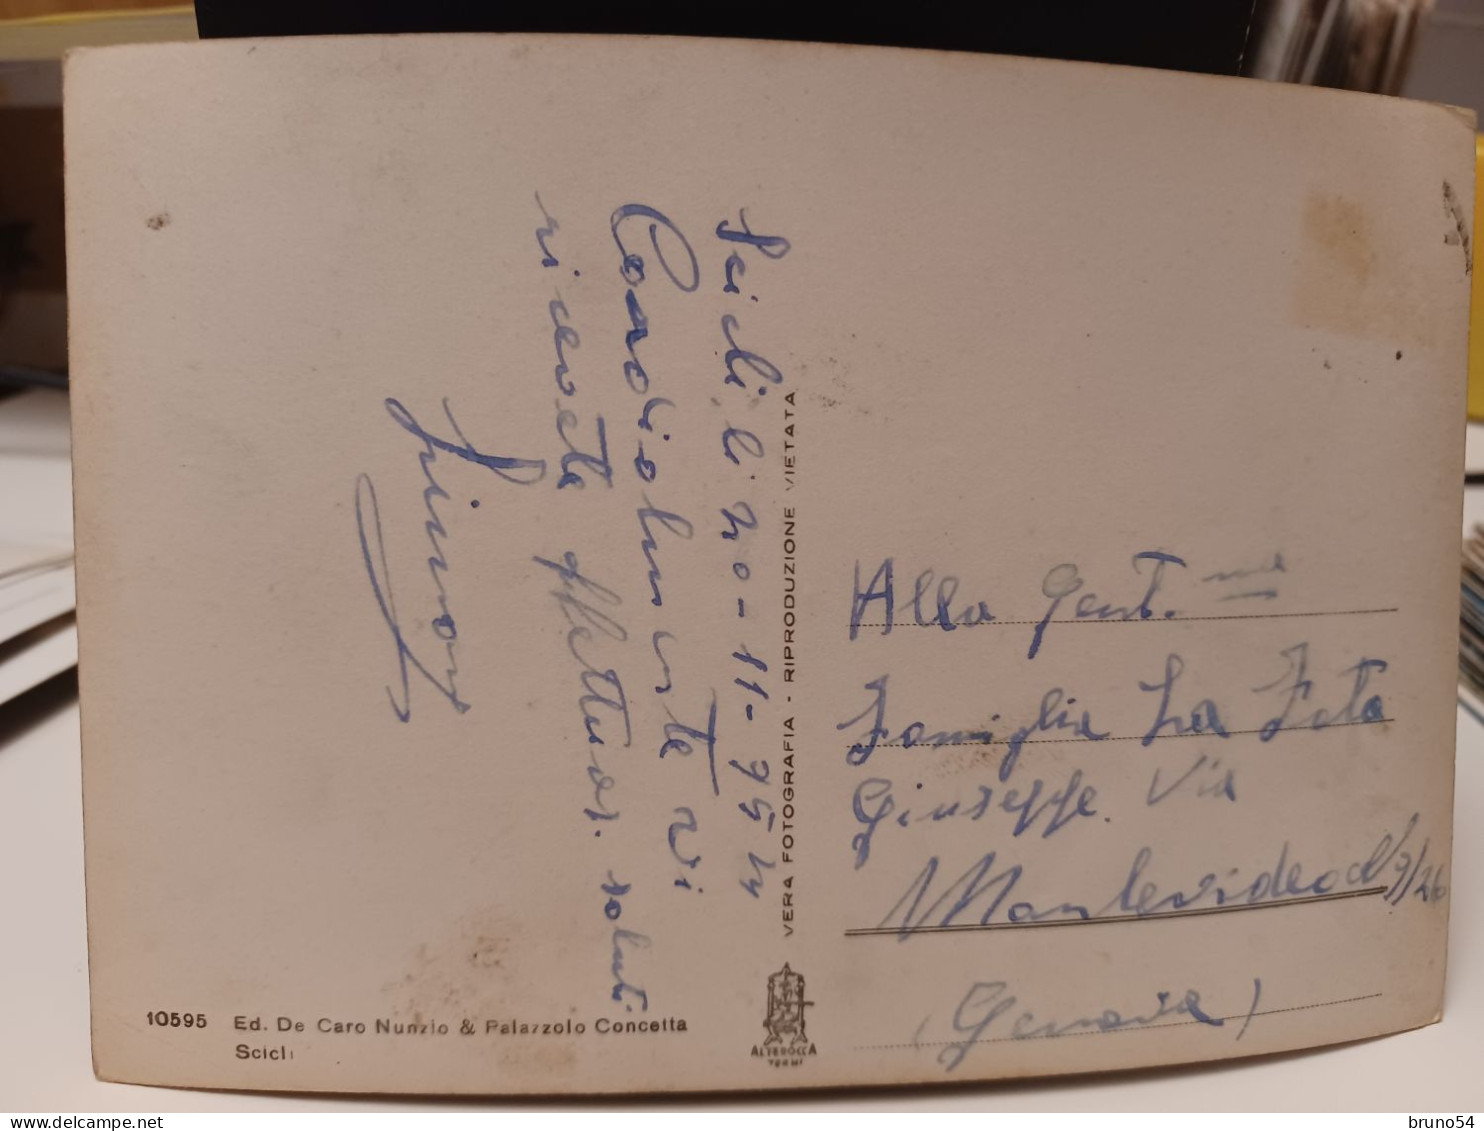 Scicli, li 20-11-954
Cordialmente vi
ricevete affettuos. saluti
VERA FOTOGRAFIA - RIPRODUZIONE VIETATA
Alla Gent.me
Famiglia La Fata
Giuseppe. Via
Montevideo 9/26
(Genova)
10595 Ed. De Caro Nunzio & Palazzolo Concetta
Scicli
ALTEROCCA
TERNI
delcampe.net
bruno54